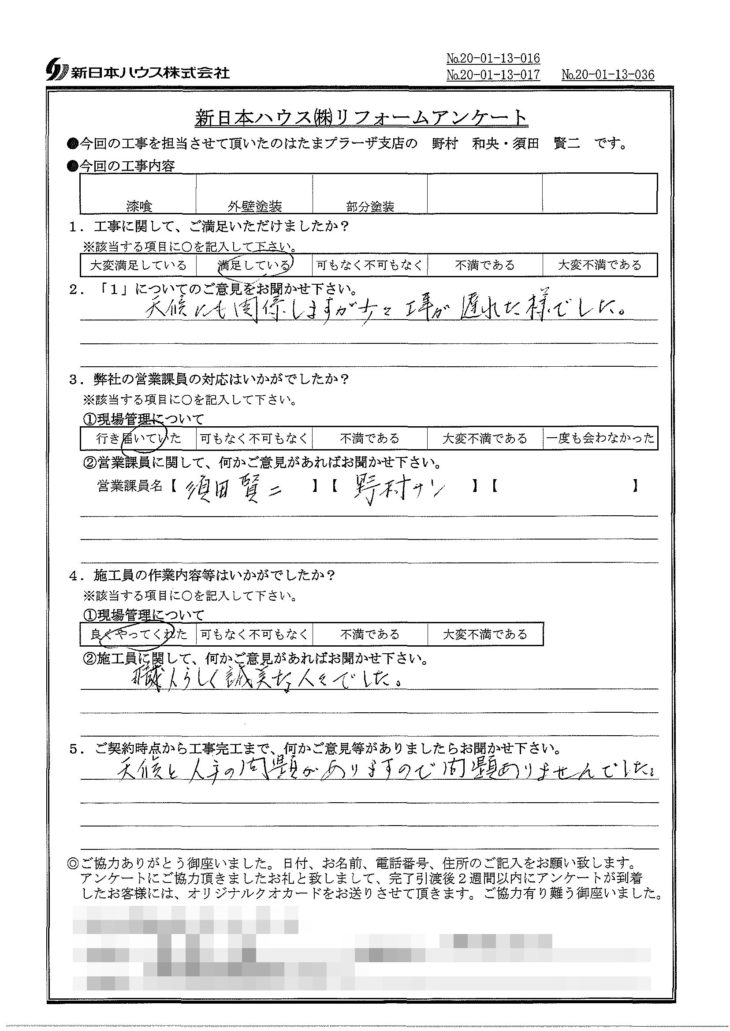 新日本ハウス株式会社
№20-01-13-016
№20-01-13-017 №20-01-13-036
新日本ハウス㈱リフォームアンケート
●今回の工事を担当させて頂いたのはたまプラーザ支店の 野村 和央・須田 賢二 です。
●今回の工事内容
漆喰 外壁塗装 部分塗装
1．工事に関して、ご満足いただけましたか？
※該当する項目に○を記入して下さい。
大変満足している 満足している 可もなく不可もなく 不満である 大変不満である
2．「1」についてのご意見をお聞かせ下さい。
天候にも関係しますが少々工事が遅れた様でした。
3．弊社の営業課員の対応はいかがでしたか？
※該当する項目に○を記入して下さい。
①現場管理について
行き届いていた 可もなく不可もなく 不満である 大変不満である 一度も会わなかった
②営業課員に関して、何かご意見があればお聞かせ下さい。
営業課員名【 須田賢二 】【 野村サン 】【 】
4．施工員の作業内容等はいかがでしたか？
※該当する項目に○を記入して下さい。
①現場管理について
良くやってくれた 可もなく不可もなく 不満である 大変不満である
②施工員に関して、何かご意見があればお聞かせ下さい。
職人らしく誠実な人々でした。
5．ご契約時点から工事完工まで、何かご意見等がありましたらお聞かせ下さい。
天候と人手の問題がありますので問題ありませんでした。
◎ご協力ありがとう御座いました。日付、お名前、電話番号、住所のご記入をお願い致します。
アンケートにご協力頂きましたお礼と致しまして、完了引渡後2週間以内にアンケートが到着
したお客様には、オリジナルクオカードをお送りさせて頂きます。ご協力有り難う御座いました。